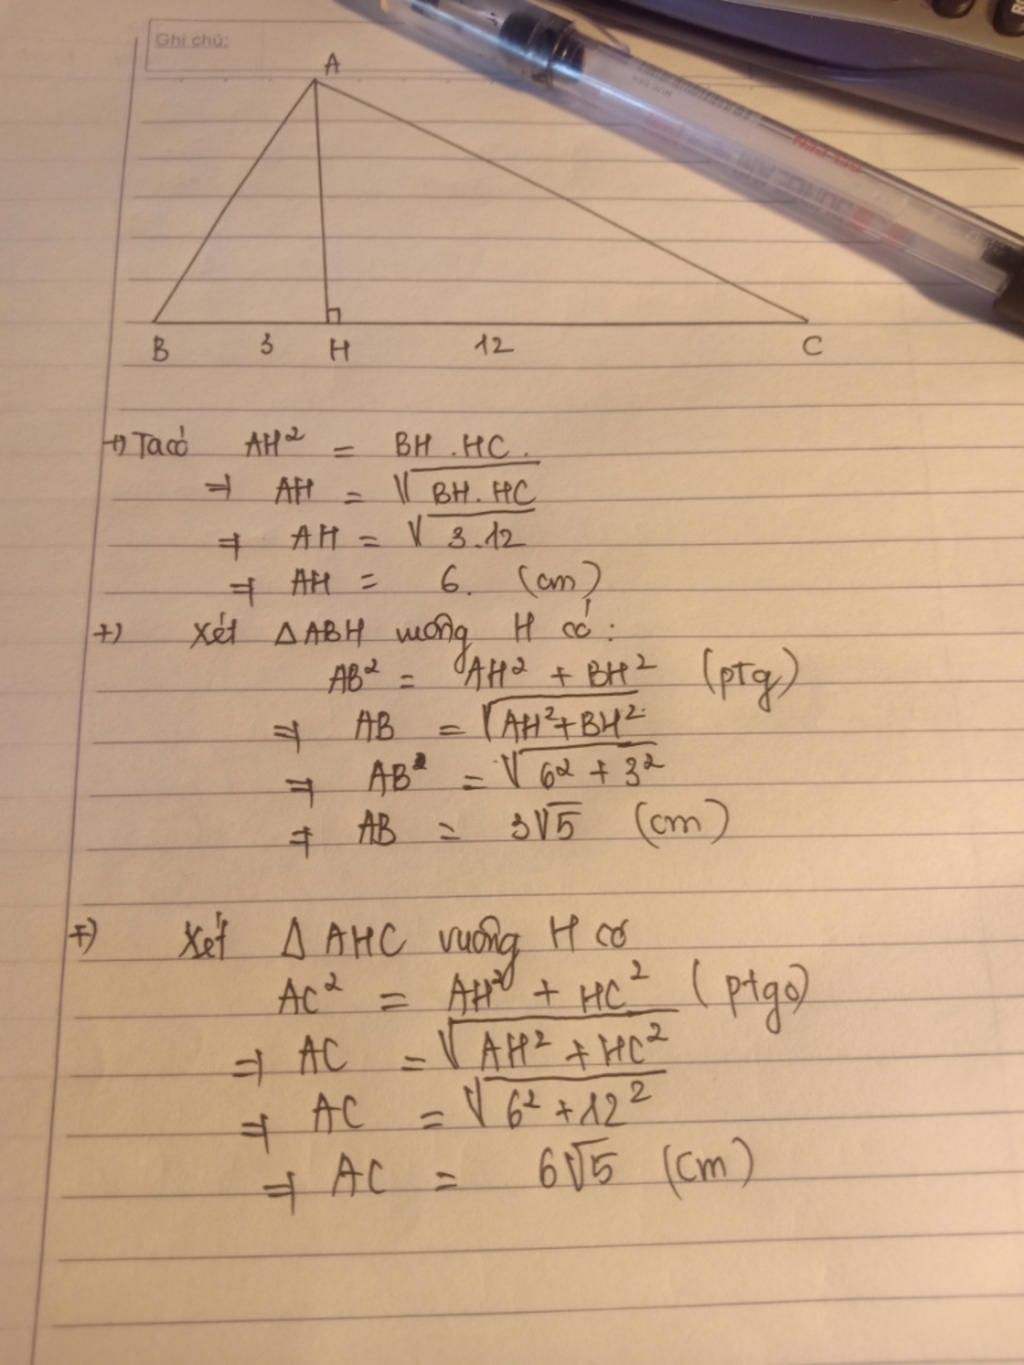 Ghi chú:
A
B 3 H 12 C
+) Ta có AH² = BH . HC .
⇒ AH = √BH . HC
⇒ AH = √3.12
⇒ AH = 6. (cm)
+) Xét △ABH vuông H có :
AB² = AH² + BH² (ptg)
⇒ AB = √AH²+BH²
⇒ AB² = √6² + 3²
⇒ AB = 3√5 (cm)
+) Xét △AHC vuông H có
AC² = AH² + HC² (ptgo)
⇒ AC = √AH² + HC²
⇒ AC = √6² + 12²
⇒ AC = 6√5 (cm)